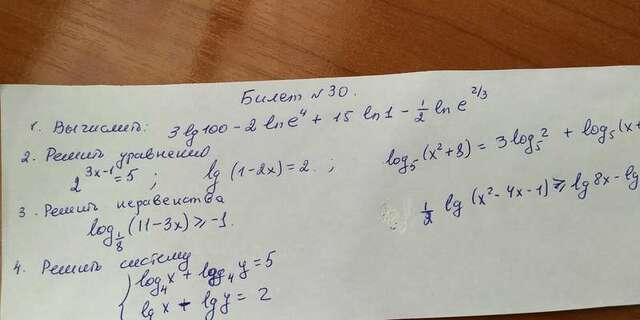 Билет №30.
1. Вычислить: 3 lg 100 - 2 ln e⁴ + 15 ln 1 - 1/2 ln e^(2/3)
2. Решить уравнение
2^(3x-1) = 5 ; lg (1-2x) = 2. ; log₅ (x²+8) = 3 log₅ 2 + log₅ (x+
3. Решить неравенства
log_(1/8) (11-3x) ≥ -1. 1/2 lg (x²-4x-1) ≥ lg 8x - lg
4. Решить систему
{ log₄ x + log₄ y = 5
lg x + lg y = 2